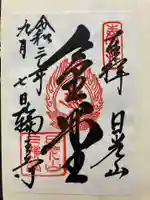 奉拝
日光山
金堂
令和三年
九月
七日
輪王寺